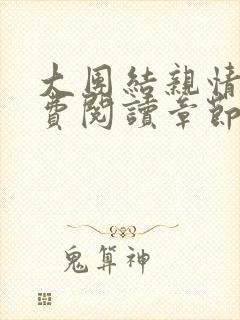 大团結親情
費閱讀章節
鬼算神